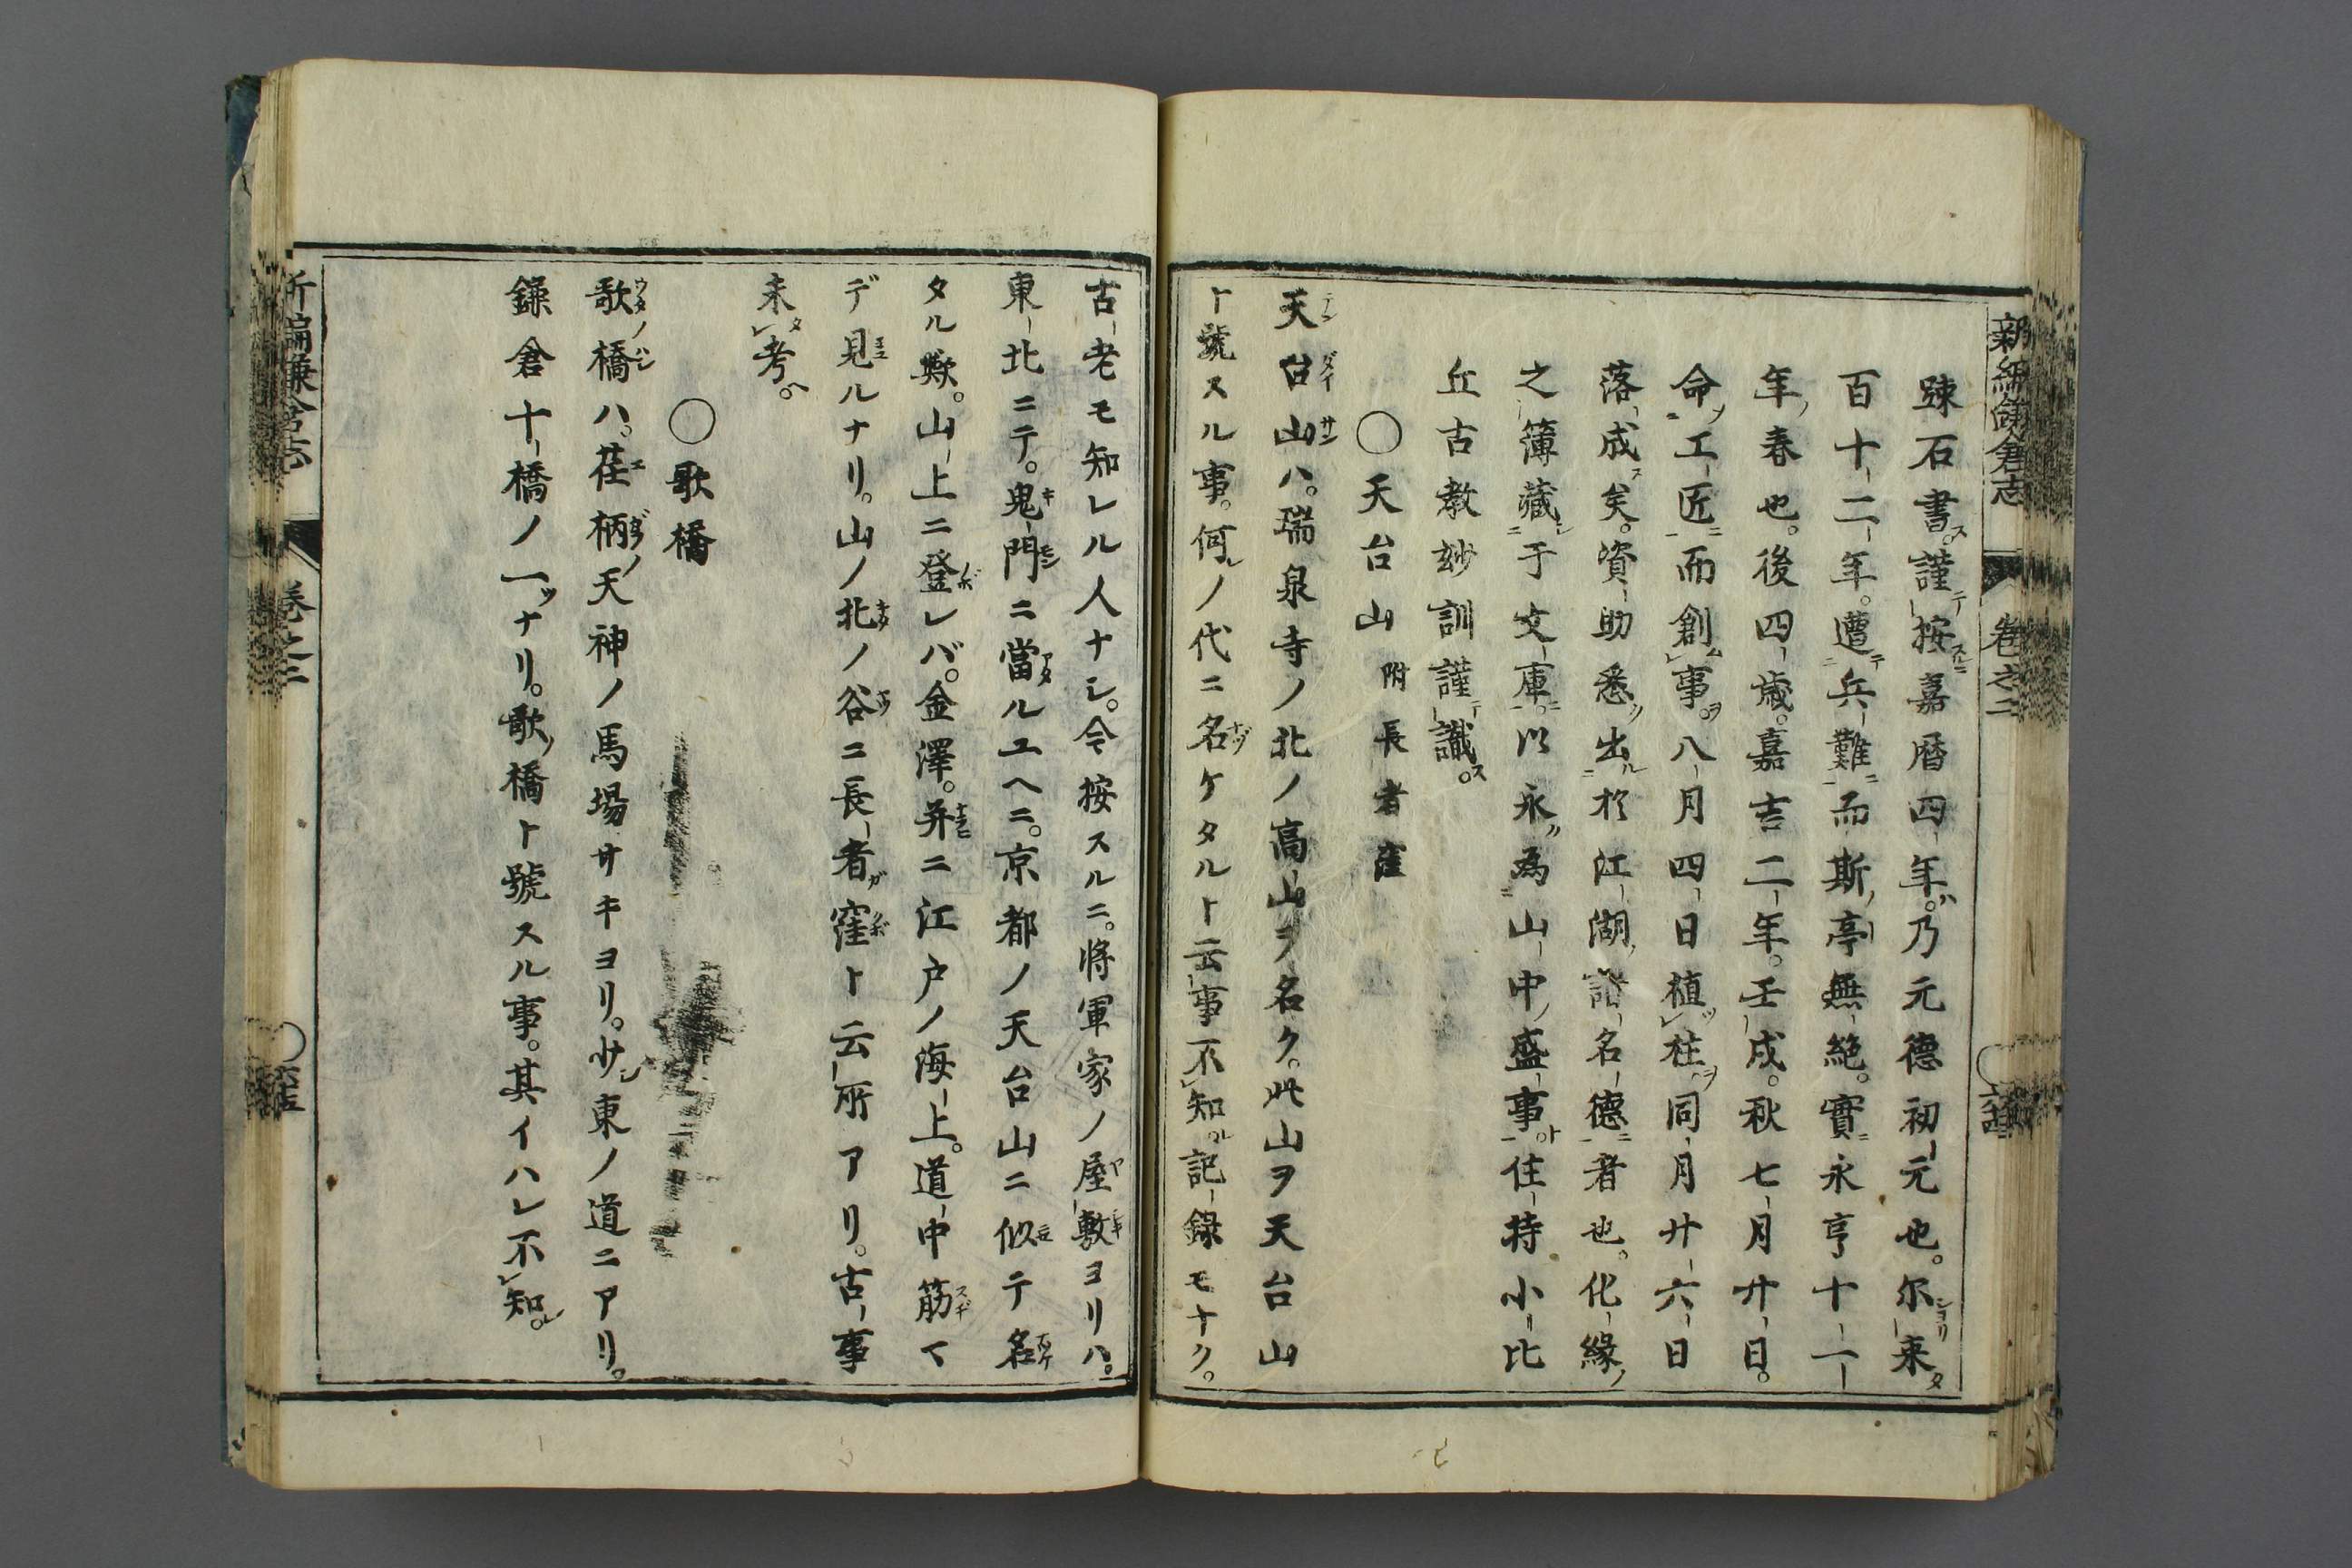 新編鎌倉志 卷之二
踈石書。謹按嘉暦四年。乃元德初元也。尓来
百十二年。遭兵難而斯亭無絶。實永亨十一
年春也。後四歳。嘉吉二年。壬戌。秋七月廿日。
命工匠而創事。八月四日植柱。同月廿六日
落成矣。資助悉出於江湖諸名德者也。化緣
之簿藏于文庫。以永為山中盛事。住持小比
丘古教妙訓謹識。
○天台山 附長者窪
天台山ハ。瑞泉寺ノ北ノ高山ヲ名ク。此山ヲ天台山
ト號スル事。何ノ代ニ名ケタルト云事不知。記録モナク。
古老モ知レル人ナシ。今按スルニ。將軍家ノ屋敷ヨリハ。
東北ニテ。鬼門ニ當ルユヘニ。京都ノ天台山ニ似テ名
タル歟。山上ニ登レバ。金澤。并ニ江戸ノ海上。道中筋マ
デ見ルナリ。山ノ北ノ谷ニ長者窪ト云所アリ。古事
未考。
○歌橋
歌橋ハ。荏柄天神ノ馬場サキヨリ。少東ノ道ニアリ。
鎌倉十橋ノ一ツナリ。歌橋ト號スル事。其イハレ不知。
新編鎌倉志 卷之二